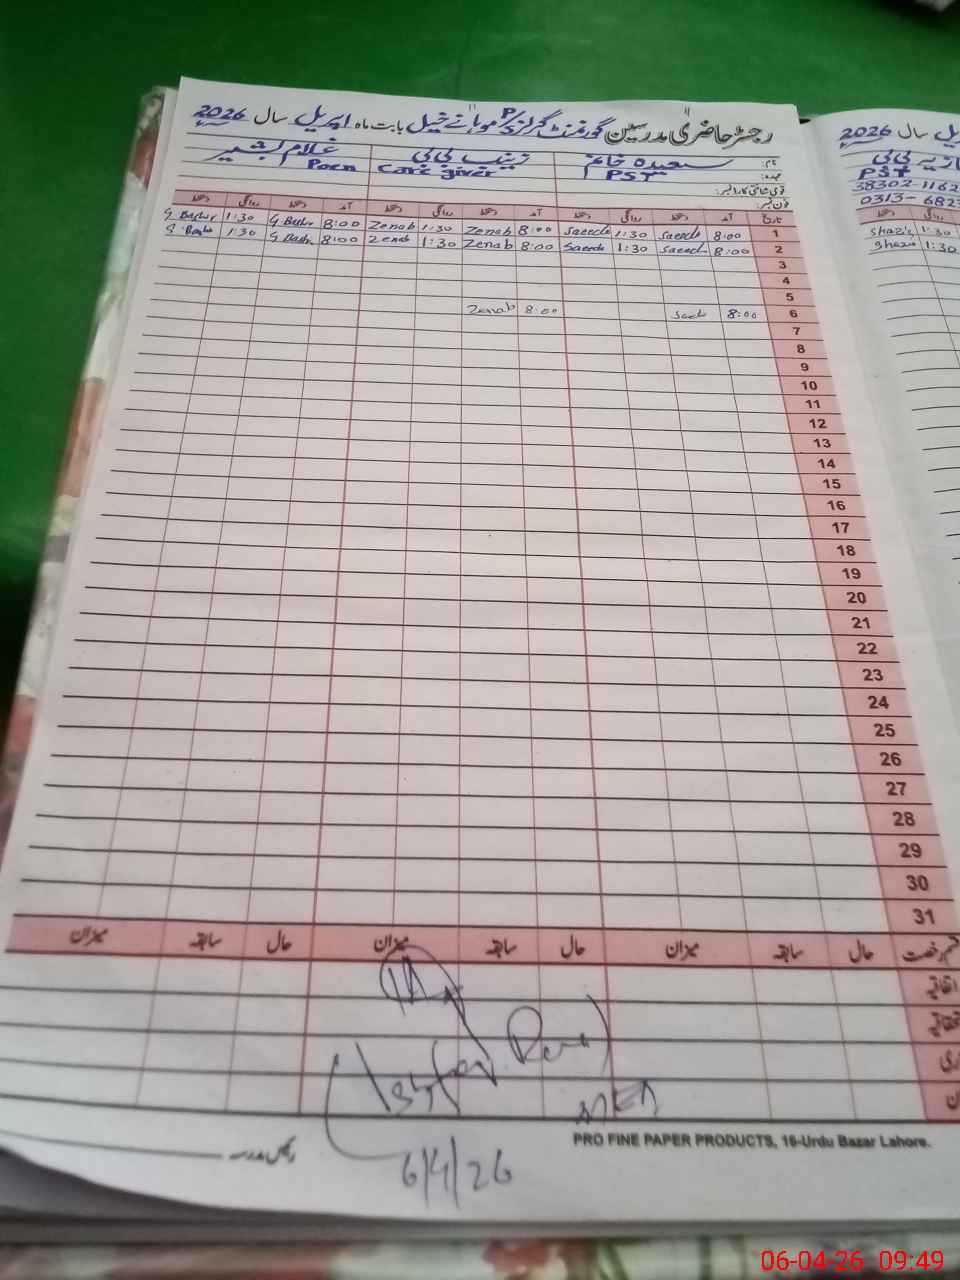 رجسٹر حاضری مدرسین گورنمنٹ گرلز P/S موہانے خیل بابت ماہ اپریل سال 2026
نام: سعیدہ خانم زینب بی بی غلام بشیر
عہدہ: PST Care giver Poen
قومی شناختی کارڈ نمبر:
فون نمبر:
تاریخ آمد دستخط روانگی دستخط آمد دستخط روانگی دستخط آمد دستخط روانگی دستخط
1 8:00 Saeeda 1:30 Saeeda 8:00 Zenab 1:30 Zenab 8:00 G Bashir 1:30 G Bashir
2 8:00 Saeeda 1:30 Saeeda 8:00 Zenab 1:30 Zenab 8:00 G Bashir 1:30 G Bashir
3
4
5
6 8:00 Saeeda 8:00 Zenab
7
8
9
10
11
12
13
14
15
16
17
18
19
20
21
22
23
24
25
26
27
28
29
30
31
قسم رخصت حال سابقہ میزان حال سابقہ میزان حال سابقہ میزان
اتفاقیہ
رئیس مدرسہ
6/4/26
PRO FINE PAPER PRODUCTS, 16-Urdu Bazar Lahore.
سال 2026
PST
38302-1162
0313-6823
روانگی دستخط
1:30
1:30
06-04-26 09:49